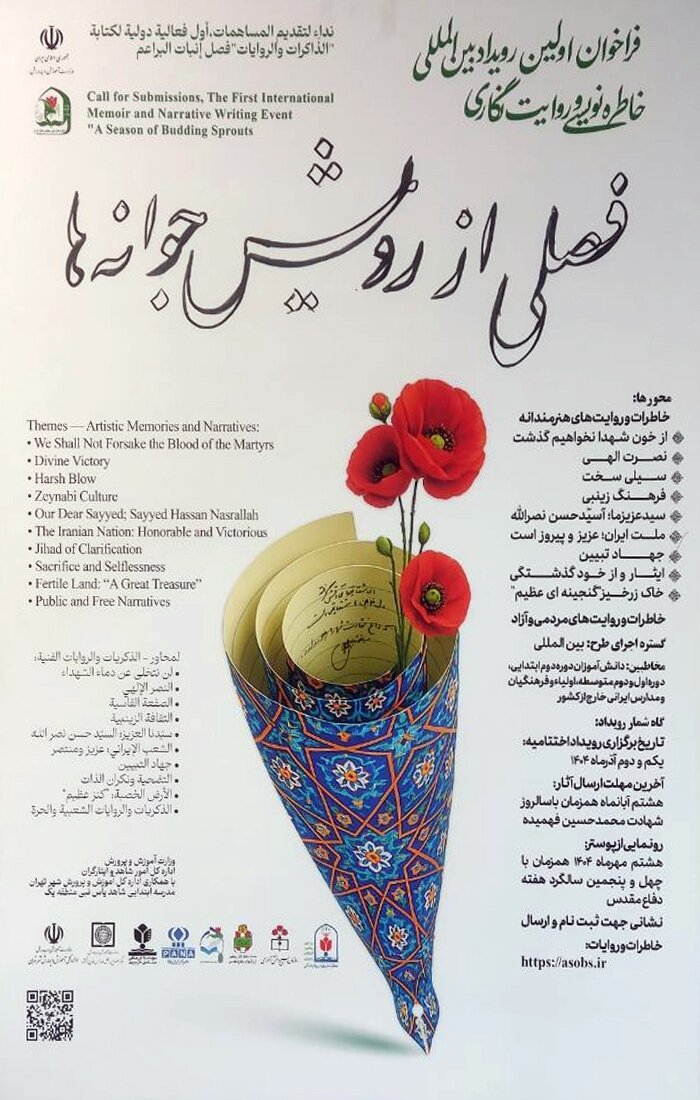 فراخوان اولین رویداد بین‌المللی
خاطره‌نویسی و روایت‌نگاری
نداء لتقديم المساهمات، أول فعالية دولية لكتابة
"الذاكرات والروايات" فصل إنبات البراعم
Call for Submissions, The First International
Memoir and Narrative Writing Event
"A Season of Budding Sprouts
فصلی از رویش جوانه‌ها
محورها:
خاطرات و روایت‌های هنرمندانه
از خون شهدا نخواهیم گذشت
نصرت الهی
سیلی سخت
فرهنگ زینبی
سید عزیز ما؛ آسیّدحسن نصرالله
ملت ایران؛ عزیز و پیروز است
جهاد تبیین
ایثار و از خود گذشتگی
خاک زرخیز"گنجینه ای عظیم"
خاطرات و روایت‌های مردمی و آزاد
گستره اجرای طرح: بین المللی
مخاطبین: دانش‌آموزان دوره دوم ابتدایی،
دوره اول و دوم متوسطه، اولیاء و فرهنگیان
و مدارس ایرانی خارج از کشور
گاه شمار رویداد:
تاریخ برگزاری رویداد اختتامیه:
یکم و دوم آذرماه ۱۴۰۴
آخرین مهلت ارسال آثار:
هشتم آبانماه همزمان با سالروز
شهادت محمدحسین فهمیده
رونمایی از پوستر:
هشتم مهرماه ۱۴۰۴ همزمان با
چهل و پنجمین سالگرد هفته
دفاع مقدس
نشانی جهت ثبت نام و ارسال
خاطرات و روایات:
https://asobs.ir
Themes — Artistic Memories and Narratives:
• We Shall Not Forsake the Blood of the Martyrs
• Divine Victory
• Harsh Blow
• Zeynabi Culture
• Our Dear Sayyed; Sayyed Hassan Nasrallah
• The Iranian Nation: Honorable and Victorious
• Jihad of Clarification
• Sacrifice and Selflessness
• Fertile Land: “A Great Treasure”
• Public and Free Narratives
لمحاور - الذكريات والروايات الفنية:
• لن نتخلى عن دماء الشهداء
• النصر الإلهي
• الصفعة القاسية
• الثقافة الزينبية
• سيّدنا العزيز؛ السيّد حسن نصر الله
• الشعب الإيراني؛ عزيز ومنتصر
• جهاد التبيين
• التضحية ونكران الذات
• الأرض الخصبة؛ "كنز عظيم"
• الذكريات والروايات الشعبية والحرة
وزارت آموزش و پرورش
اداره کل امور شاهد و ایثارگران
با همکاری اداره کل آموزش و پرورش شهر تهران
مدرسه ابتدایی شاهد یاس نبی منطقه یک
PANA